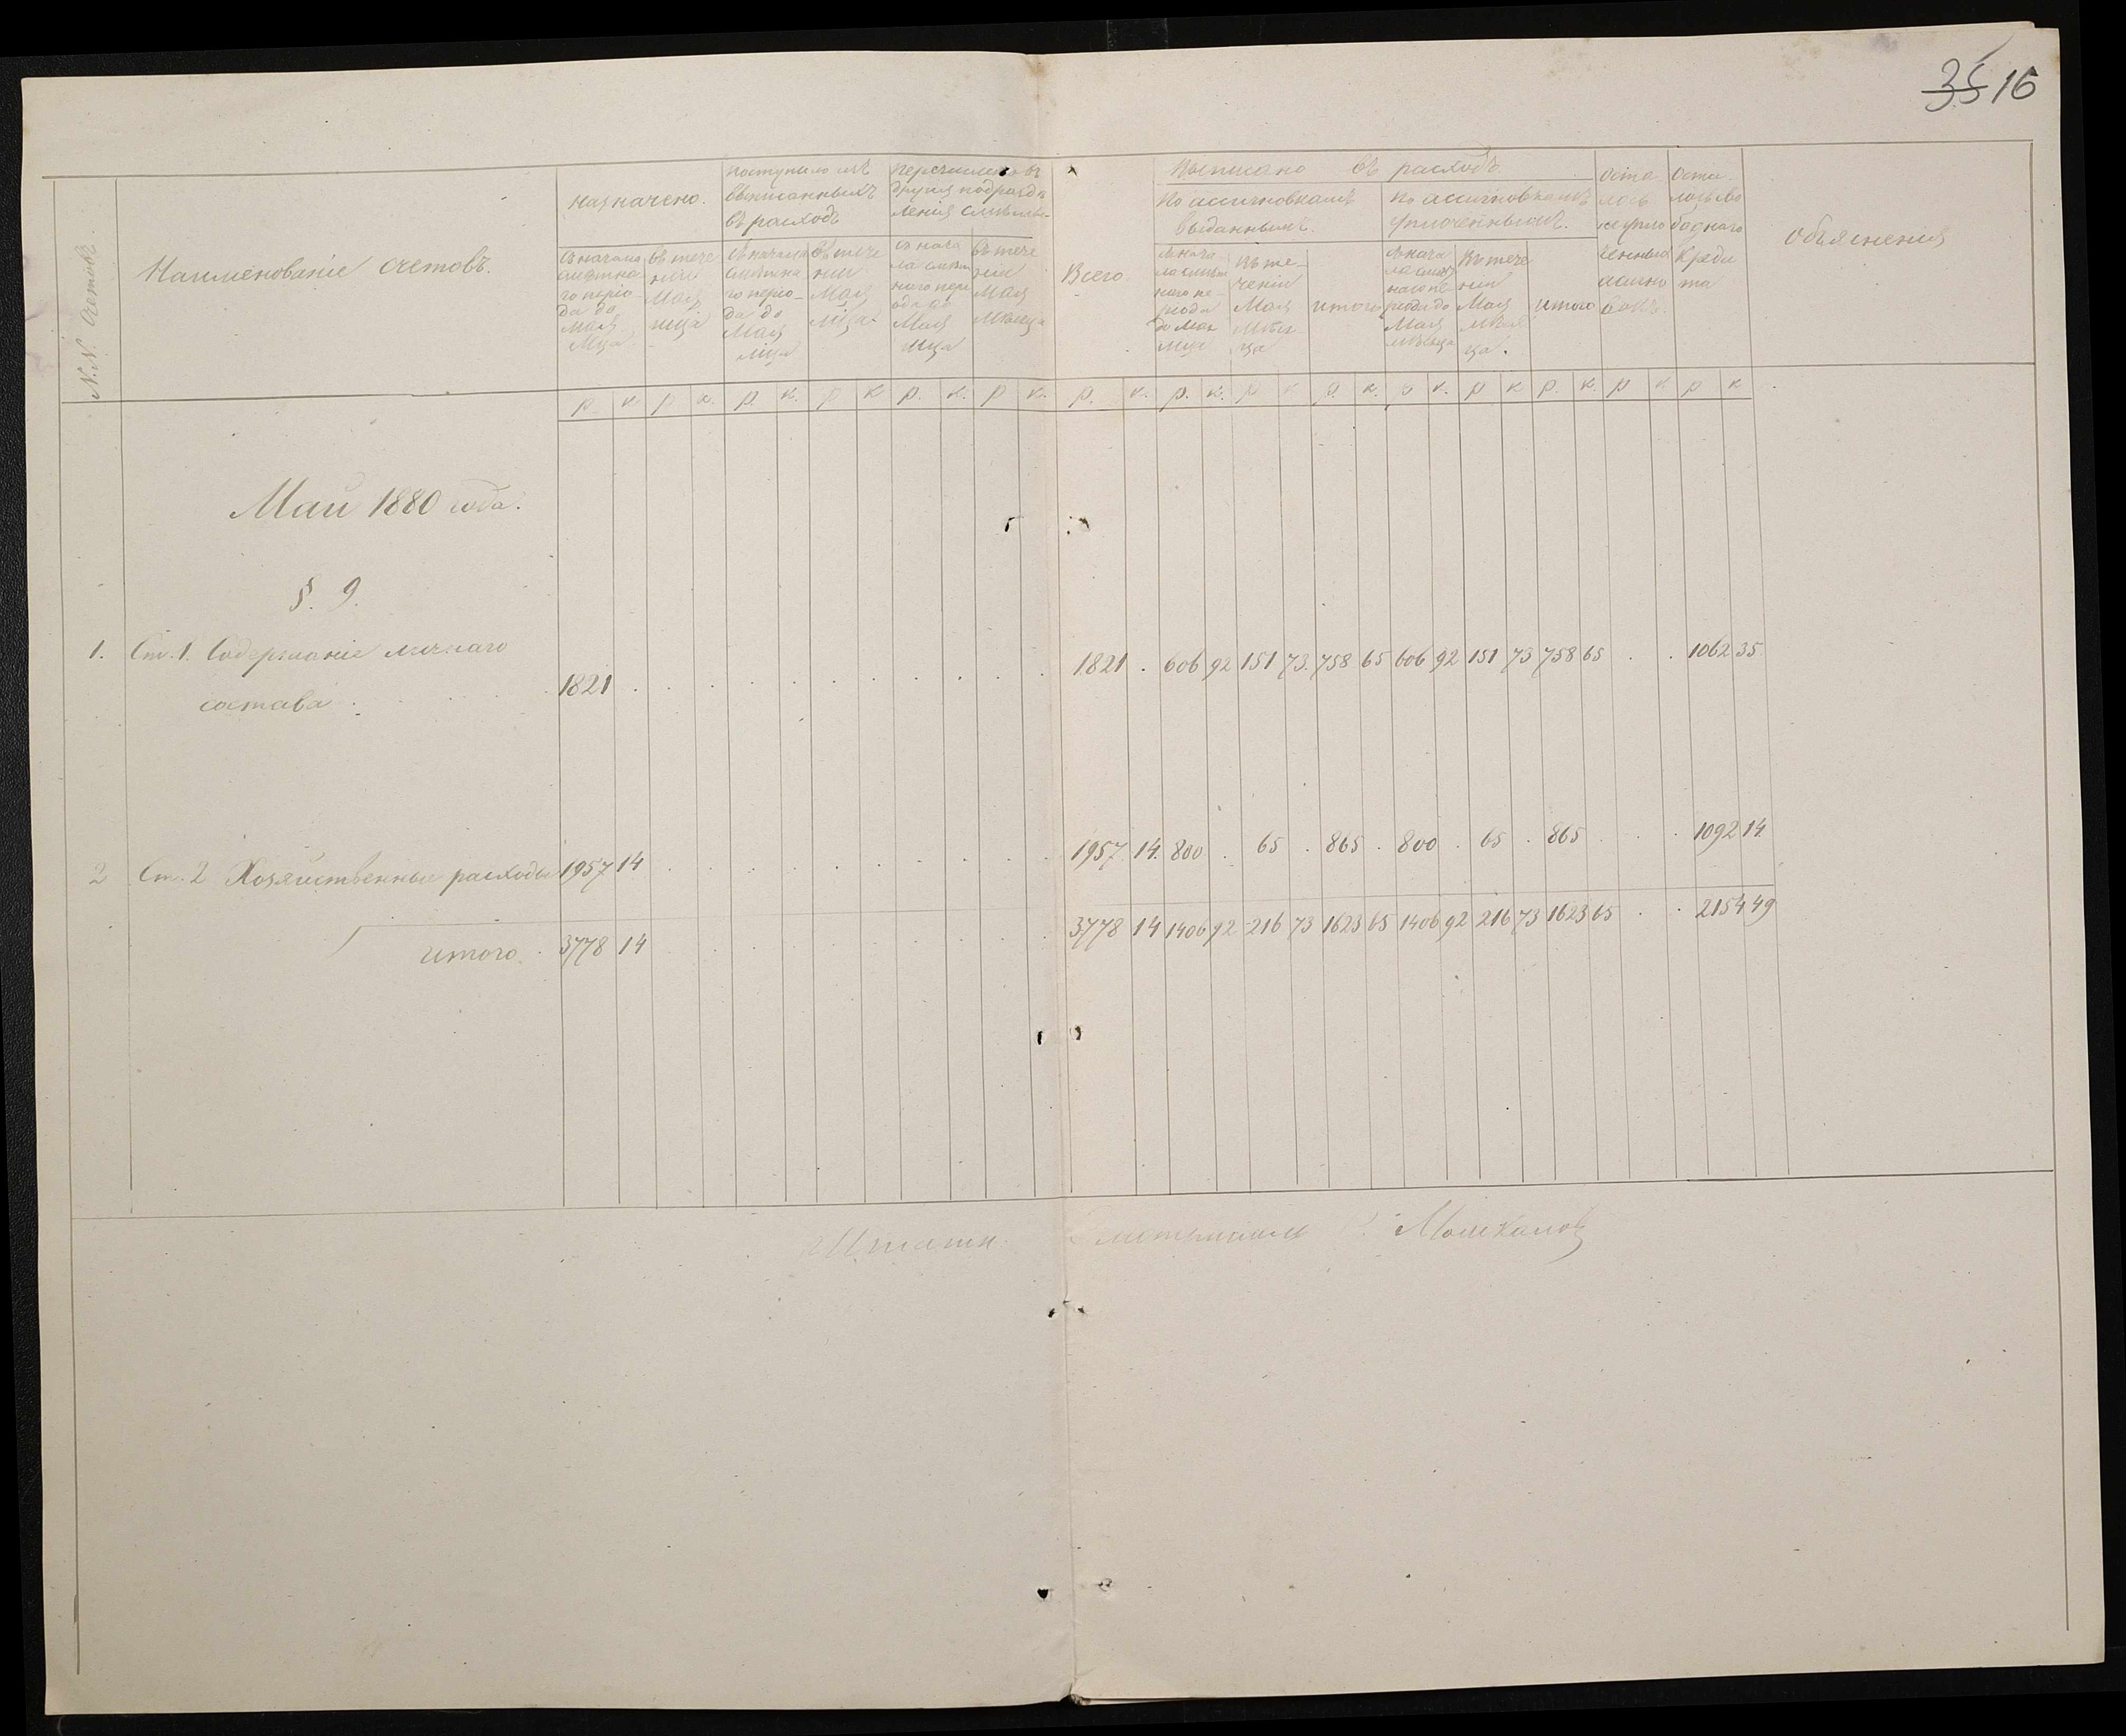 35 16
N.N. Счетовъ.
Наименованіе счетовъ.
Назначено.
Съ начала
смѣтна
го періо-
да до
Мая
Мца.
Въ тече
ніи
Мая
мца
Поступило изъ
выписанныхъ
въ расходъ
Съ начала
смѣтна
го періо-
да до
Мая
мца
Въ тече
ніи
Мая
Мца.
Перечислено въ
другія подраздѣ
ленія
Съ нача
ла смѣт
наго пері
ода до
Мая
Мца
Въ тече
ніи
Мая
Мѣсяца
Всего.
Выписано въ расходъ
По ассигновкамъ
выданнымъ.
Съ нача
ла смѣт
наго пе-
ріода
до Мая
мца
Въ те-
ченіи
Мая
Мѣся-
ца
итого
По ассигновкамъ
уплоченнымъ.
Съ нача
ла смѣт
наго пе
ріода до
Мая
мѣсяца
Въ тече
ніи
Мая
Мѣся
ца.
итого
Оста
лось
неупло
ченныхъ
ассигно
вокъ.
Оста-
лось сво
боднаго
Креди
та
Объясненія
р. к р к. р. к. р к р. к. р к. р. к. р. к. р к р. к. р к. р к р. к. р к р к
Май 1880 года.
§. 9.
1. Ст. 1. Содержаніе личнаго
состава . 1821 . 1821 . 606 92 151 73. 758 65 606 92 151 73 758 65 . . 1062 35
2 Ст. 2 Хозяйственные расходы 1957 14 1957 14. 800 . 65 . 865 . 800 . 65 . 865 . . . 1092 14
итого. 3778 14 3778 14 1406 92 216 73 1623 65 1406 92 216 73 1623 65 . . 2154 49
Штатн. Смотритель